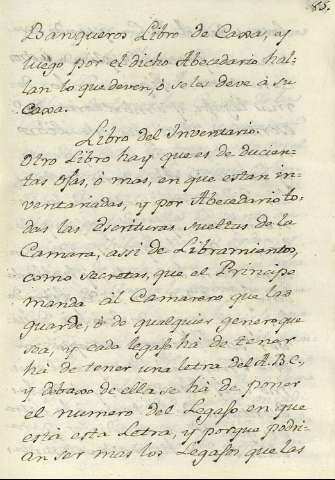 85.
Banqueros Libro de Caxa, ay
luego por el dicho Abecedario hal-
lan lo que deven, ò se les deve à su
Caxa.
Libro del Inventario.
Otro Libro hay que es de ducien-
tas Ojas, ò mas, en que estan in-
ventariadas, y por Abecedario to-
das las Escrituras sueltas de la
Camara, assi de Libramientos,
como secretas, que el Principe
manda àl Camarero que las
guarde, ò de qualquier genero que
sea, y cada legajo hà de tener
hà de tener una letra del A.B.C,
y debaxo de ella se hà de poner
el numero del Legajo en que
està esta Letra, y porque podri-
an ser mas los Legajos, que las